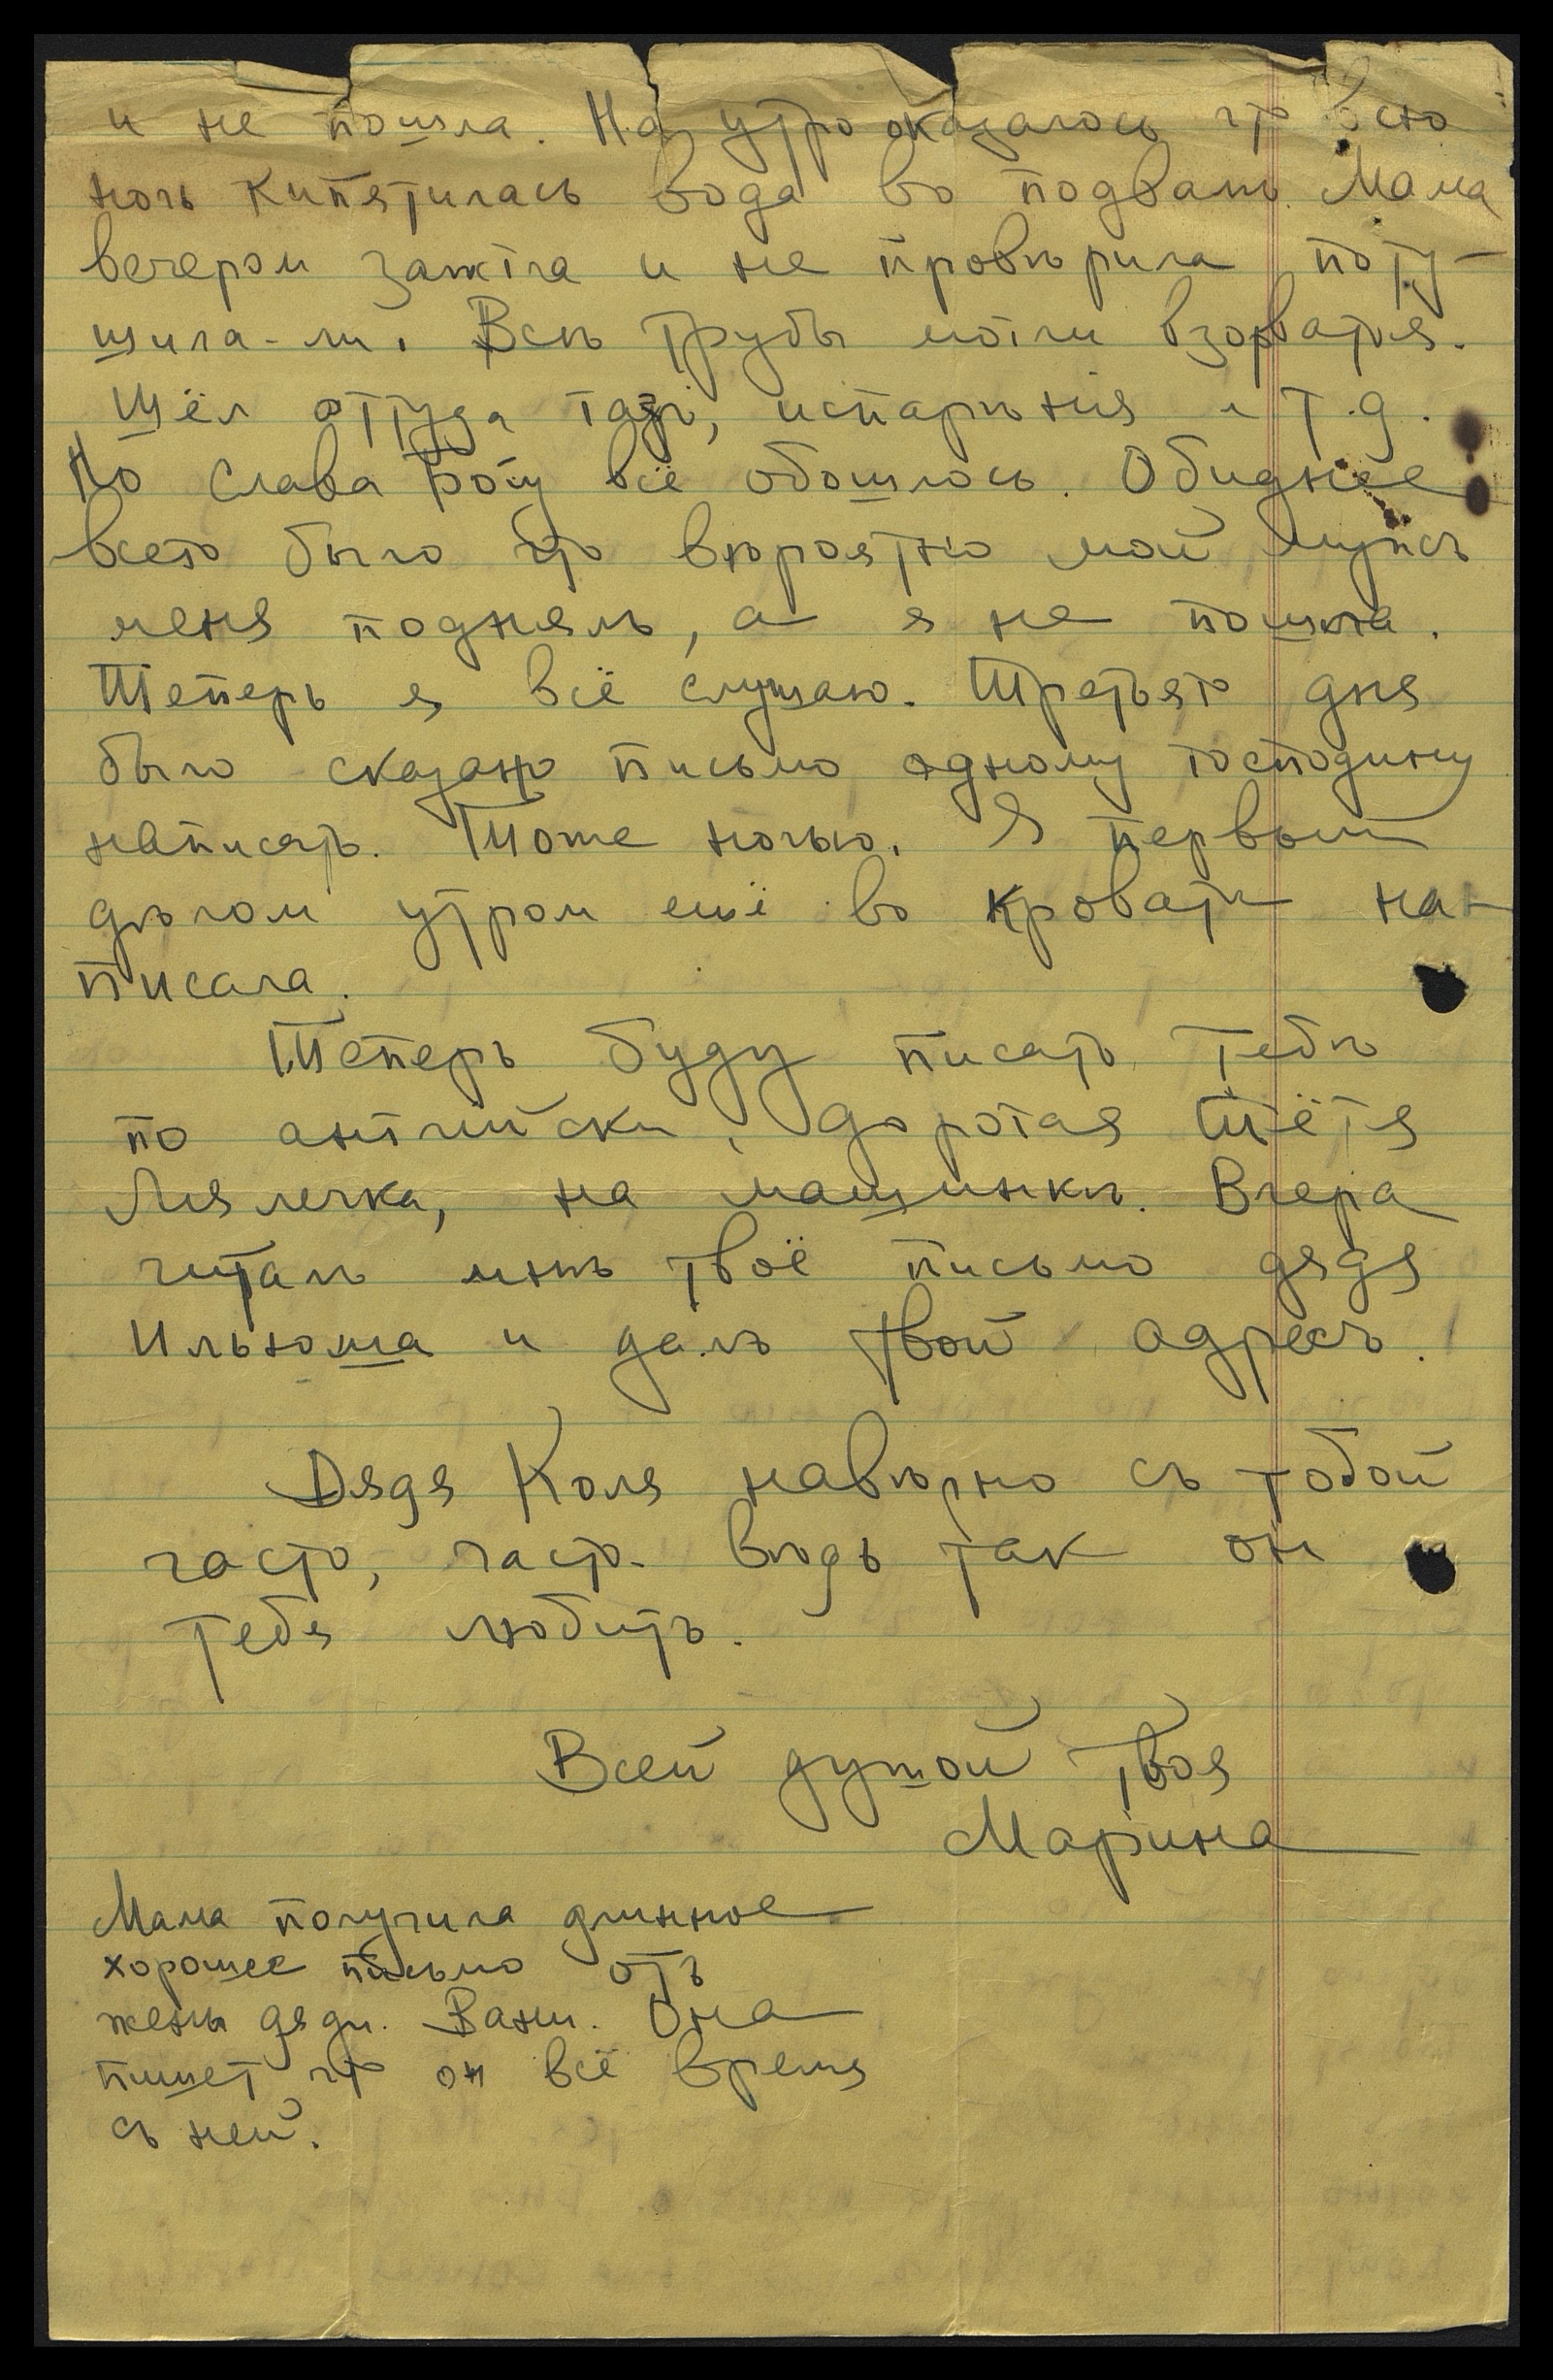 и не пошла. На утро оказалось что всю
ночь кипятилась вода въ подвалѣ. Мама
вечеромъ зажгла и не провѣрила поту-
шила-ли. Всѣ трубы могли взорваться.
Шёл оттуда газъ, испарѣнія и т.д.
Но Слава Богу всё обошлось. Обиднее
всего было что вѣроятно мой мужъ
меня поднялъ, а я не пошла.
Теперь я всё слушаю. Третьяго дня
было сказано письмо одному господину
написать. Тоже ночью. Я первым
дѣлом утром ещё въ кровати на-
писала.
Теперь буду писать тебѣ
по английски, дорогая тётя
Лялечка, на машинкѣ. Вчера
читалъ мнѣ твоё письмо дядя
Ильюша и далъ твой адресъ.
Дядя Коля навѣрно съ тобой
часто, часто. вѣдь так он
тебя любитъ.
Всей душой твоя
Марина
Мама получила длинное
хорошее письмо отъ
жены дяди Вани. Она
пишет что он всё время
съ ней.